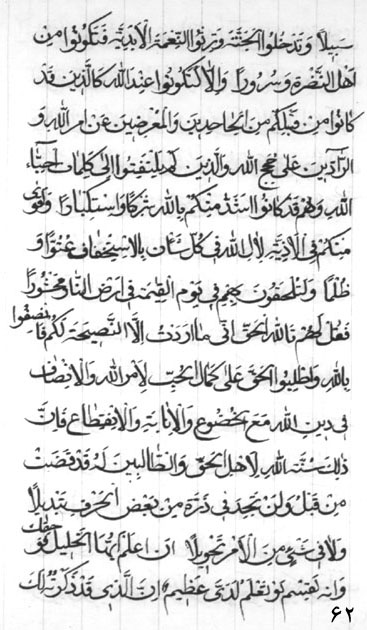 سبيلاً وتدخلوا الجنّة وترثوا النعمة الأبديّة فتكونوا من
اهل النضرة وسروراً والا لتكونوا عند الله كالذين قد
كانوا من قبلكم من الجاحدين والمعرضين عن امر الله و
الرادّين على حجج الله والذين لم يلتفتوا الى كلمات احبّاء
الله وهم قد كانوا اشدّ منكم بالله شركا واستكبارا واقوى
منكم فى الاذيّة لآل الله فى كل شان بالاستخفاف عتوّا و
ظلماً ولتلحقون بهم فى يوم القيمة فى ارض النار محشوراً
فعل لهم تالله الحق انى ما اردت الا النصيحة لكم فانصفوا
بالله واطلبوا الحق على كمال الحب لامر الله والانصاف
فى دين الله مع الخضوع والانابة والانقطاع فان
ذلك سنّة الله لاهل الحق والطالبين له قد قضت
من قبل ولن تجد فى ذرّة من بعض الحرف تبديلاً
ولا فى شىء من الامر تحويلاً ان اعلم ايها الخليل فو حقك
وانه لقسم لو تعلم لدىّ عظيم ان الذى قد ذكرت لك
٦٢